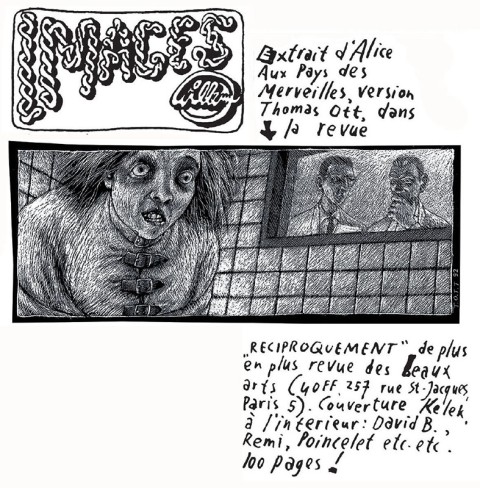 IMAGES
Willem
Extrait d'Alice
Aux Pays des
Merveilles, version
Thomas Ott, dans
la revue
T.OTT 92
„RECIPROQUEMENT" de plus
en plus revue des Beaux
arts (40FF, 257 rue St-Jacques,
Paris 5). Couverture Kelek,
à l'intérieur: David B.,
Remi, Poincelet etc. etc.
100 pages!